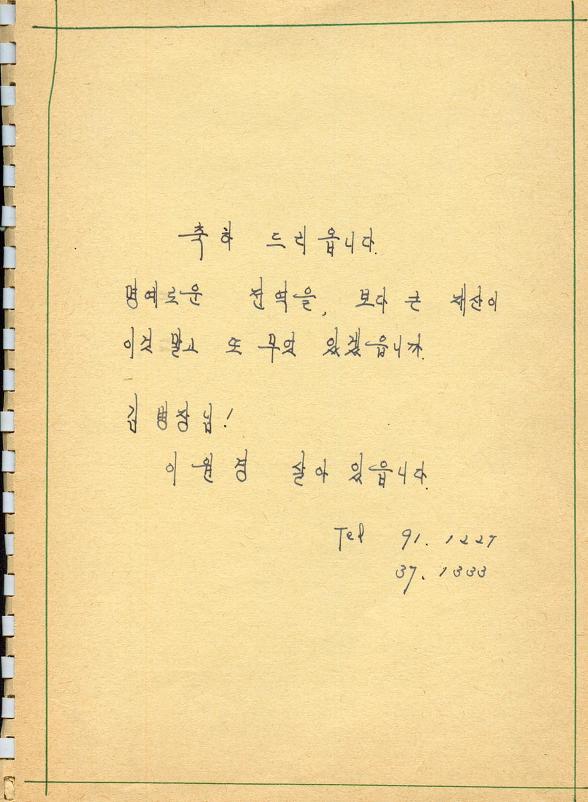 축하 드리옵니다.
명예로운 전역을, 보다 큰 재산이
이것 말고 또 무엇 있겠읍니까.
김 병장님!
이원경 살아 있읍니다.
Tel 91. 1227
37. 1333